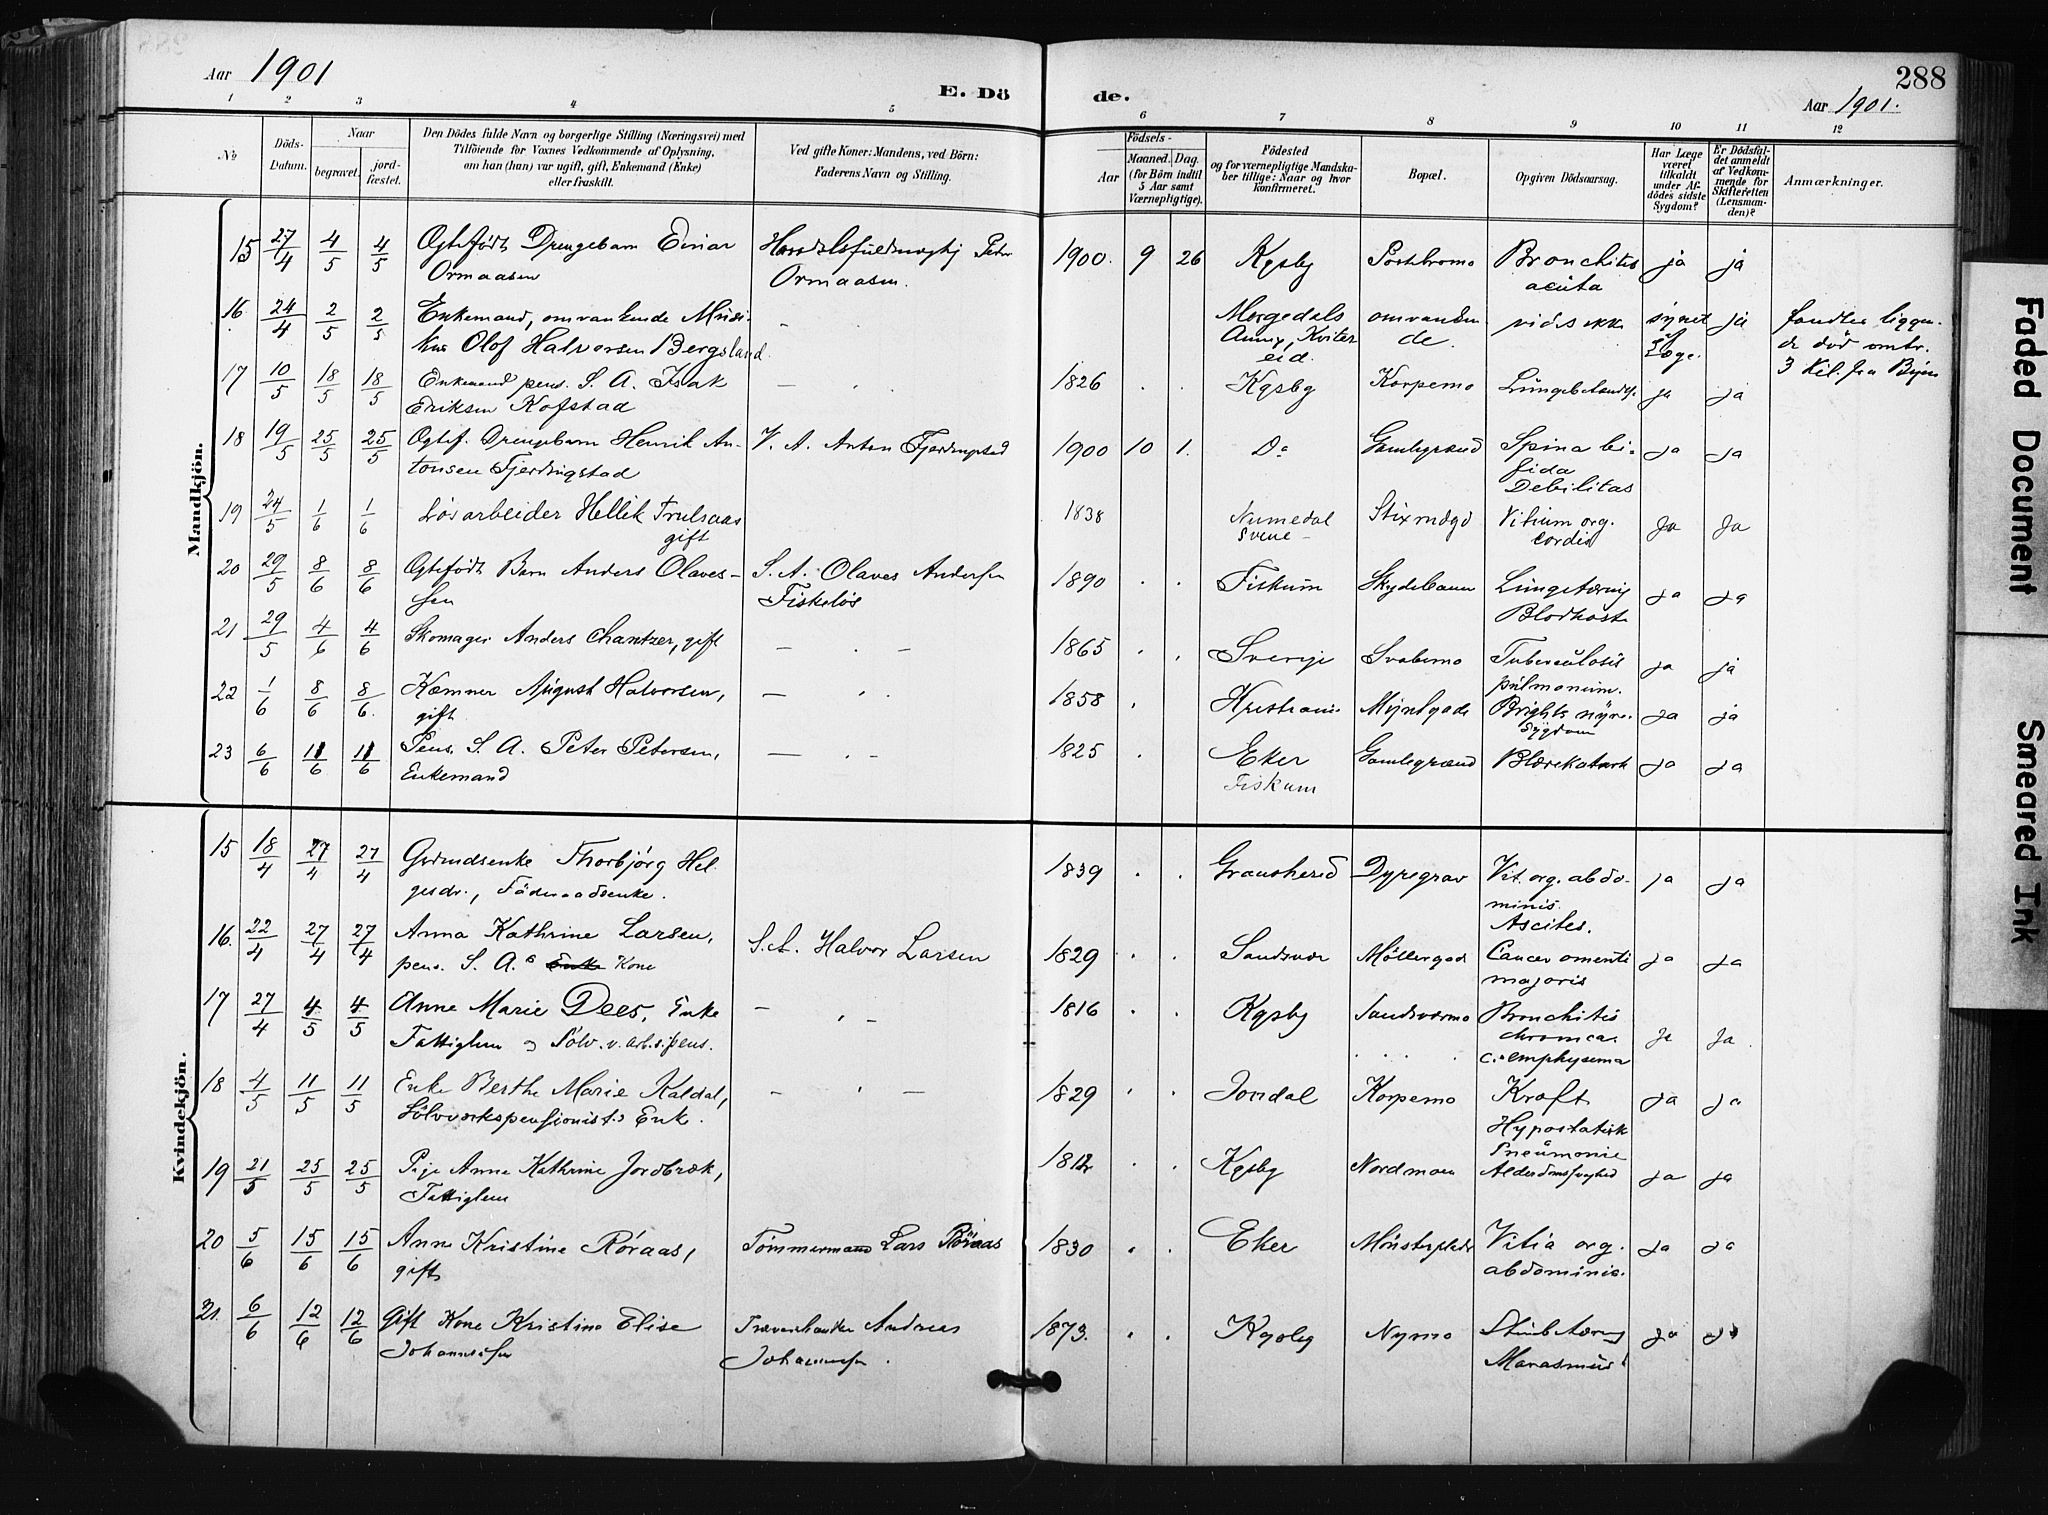 Aar 1901
E. Dö
de.
288
Aar 1901.
1 2 3 4 5 6 7 8 9 10 11 12
No
Döds-
Datum.
Naar
begravet.
jord-
fæstet.
Den Dödes fulde Navn og borgerlige Stilling (Næringsvei) med
Tilföiende for Voxnes Vedkommende af Oplysning,
om han (hun) var ugift, gift, Enkemand (Enke)
eller fraskilt.
Ved gifte Koner: Mandens, ved Börn:
Faderens Navn og Stilling.
Födsels-
Aar
Maaned.
Dag.
(for Börn indtil
5 Aar samt
Værnepligtige).
Födested
og for værnepligtige Mandska-
ber tillige: Naar og hvor
konfirmeret.
Bopæl.
Opgiven Dödsaarsag.
Har Læge
været
tilkaldt
under Af-
dödes sidste
Sygdom?
Er Dödsfal-
det anmeldt
af Vedkom-
mende for
Skifteretten
(Lensman-
den)?
Anmærkninger.
Mandkjön.
15 27/4 4/5 4/5 Ogtefödt Drengebarn Einar Peter 1900. 9 26 Kgsby Bronchitis ja ja
Ormaasen Ormaasen. acuta
16 24/4 2/5 2/5 Enkemand, omvankende Musi- - Morgedals omvanken- vides ikke synet ja fandtes liggen-
kus Olof Halvorsen Bergsland. Annex, Kvites- de. af de död omtr.
eid. Læge. 3 Kil. fra Byen
17 10/5 18/5 18/5 Enkemand pens. S. A. Isak - 1826 Kgsby Korpemo ja ja
Eriksen Kofstad
18 19/5 25/5 25/5 Ogtef. Drengebarn Henrik An- V. A. Anton Fjerdingstad 1900 10 1. Do Gamlegrænd Spina bi- ja ja
tonsen Fjerdingstad fida
Debilitas
19 24/5 1/6 1/6 Lösarbeider Hellik Trulsaas 1838 Numedal Vitium org. Ja Ja
gift Svene - cordis
20 29/5 8/6 8/6 Ogtefödt Barn Anders Olaves- S. A. Olaves Andersen 1890 Fiskum Skydebanen Lungetæring ja ja
sen Fiskelös Blodhoste
21 29/5 4/6 4/6 Skomager Anders Chantzer, gift - - 1865 Sverige Svabemo Tuberculosis ja ja
pulmonum.
22 1/6 8/6 8/6 Kæmner August Halvorsen, - 1858 Kristiania Myntgade Brights nyre- ja ja
gift sygdom
23 6/6 11/6 11/6 Pens. S. A. Peter Petersen, - - 1825 Eker Gamlegrænd Blærekatarrh ja ja
Enkemand Fiskum
Kvindekjön.
15 18/4 27/4 27/4 Gaardsenke Thorbjörg Hel- 1839 Gransherad Dyregrav Vit. org. abdo- ja ja
gesdr., Föderaadsenke. minis.
Ascites.
16. 22/4 27/4 27/4 Anna Kathrine Larsen, S. A. Halvor Larsen 1829 Sandsvær Möllergad Cancer omenti ja ja
pens. S. A.s Enke Kone majoris
17 27/4 4/5 4/5 Anne Marie Dees, Enke - - 1816 Kgsby Sandsværmo Bronchitis Ja Ja
Fattiglem og Sölv. v. arb.s. pens. chronica.
c. emphysema
18 4/5 11/5 11/5 Enke Berthe Marie Kaldal, - - 1829 Jondal Korpemo Kræft ja ja
Sölvverkspensionist.s Enk. Hypostatisk
Pneumonie
19 21/5 25/5 25/5 Pige Anne Kathrine Jordbræk, Kgsby Nordmoen Alderdomssvaghed ja ja
Fattiglem
20 5/6 15/6 15/6 Anne Kristine Röraas, Tömmermand Lars Röraas 1830 Eker Vitia org. ja ja
gift abdominis.
21. 6/6 12/6 12/6 Gift Kone Kristine Elise Andreas 1873. Kgsby Nymo ja ja
Johannessen Johannessen. Marasmus
Faded Document
Smeared Ink